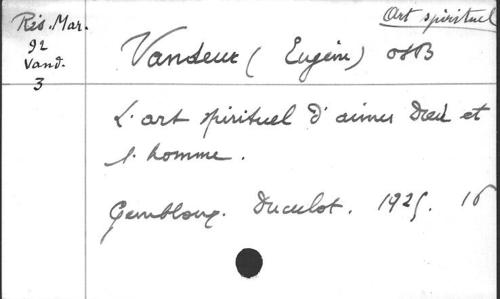 Art spirituel
Rés. Mar.
92
Vand.
3
Vandeur (Eugène) OSB
L'art spirituel d'aimer Dieu et
l'homme.
Gembloux. Duculot. 1925. 16